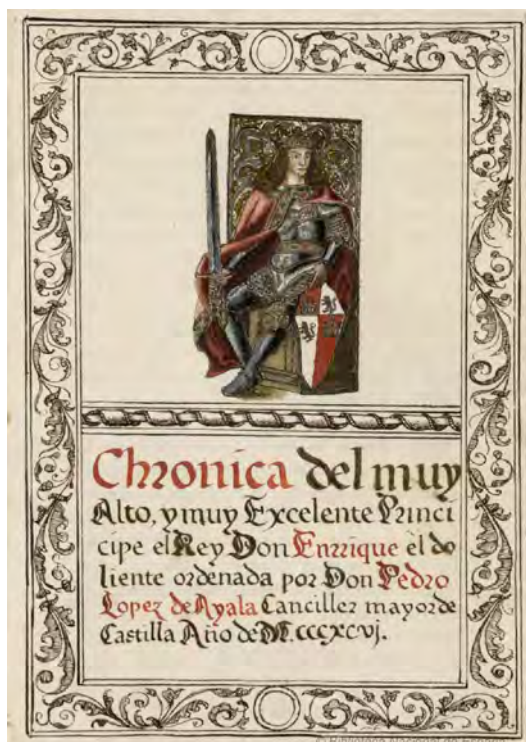 Chronica del muy
Alto, y muy Excelente Princi
cipe el Rey Don Enrrique el do
liente ordenada por Don Pedro
Lopez de Ayala Canciller mayor de
Castilla Año de M.cccxcvj.